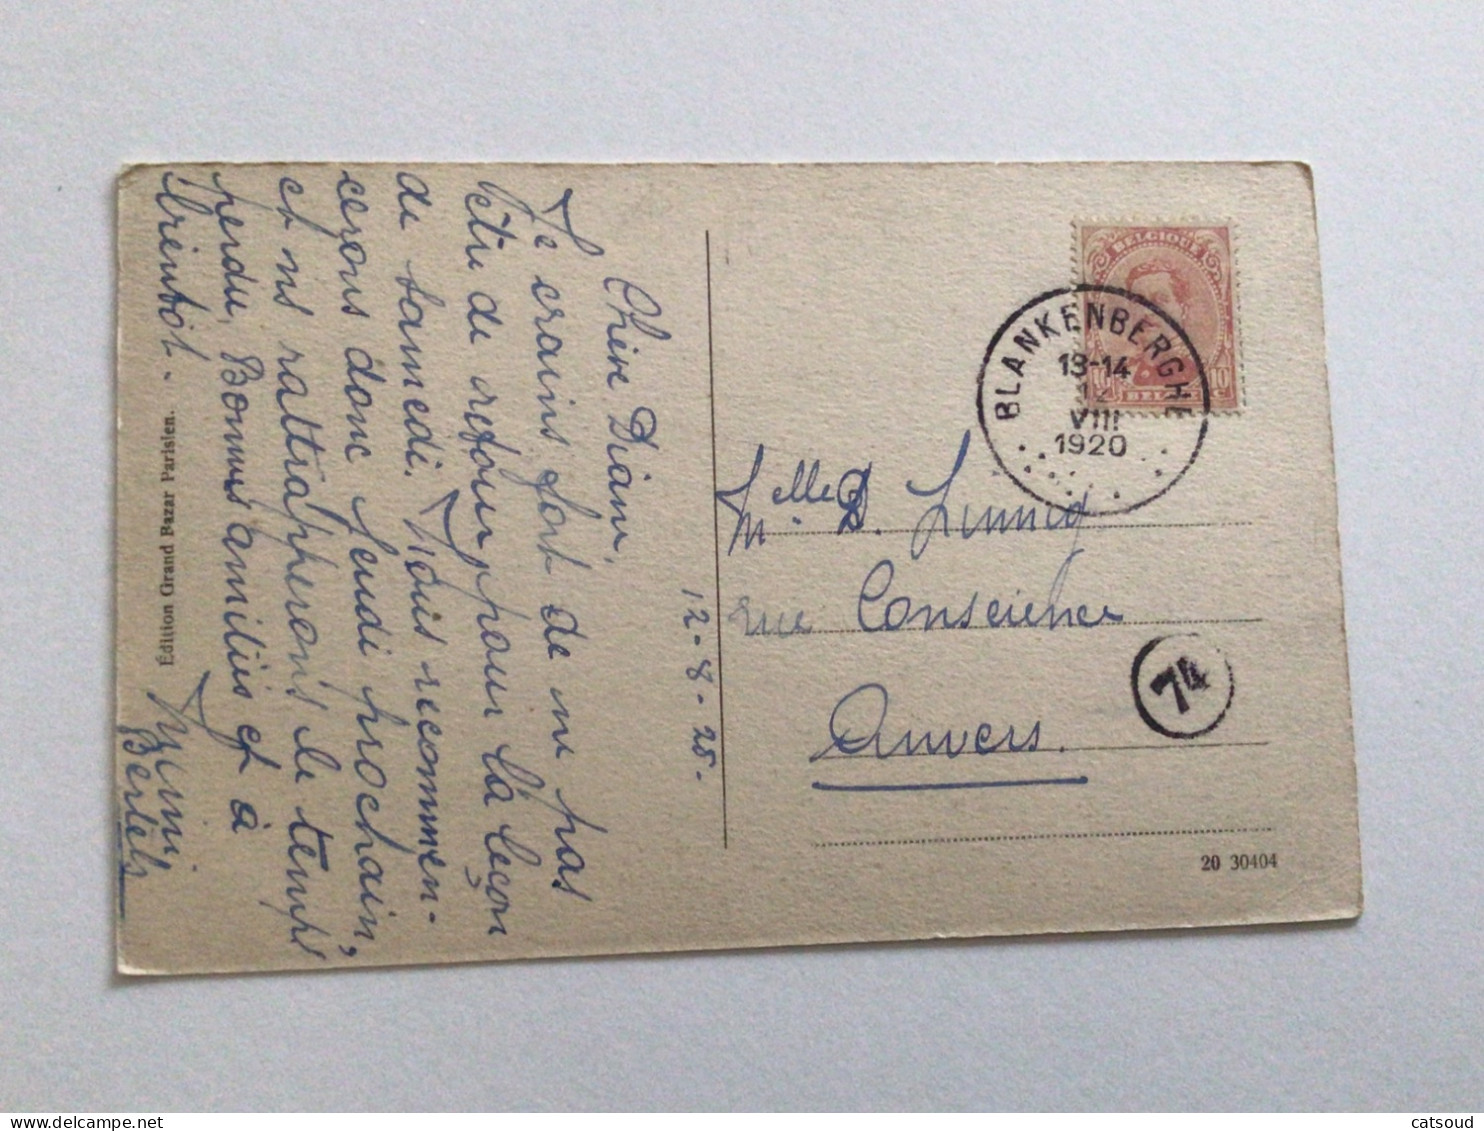 Chère Diane,
Je crains fort de ne pas
être de retour pour la leçon
de samedi. Nous recommen-
cerons donc jeudi prochain,
et ns rattrapperons le temps
perdu. Bonnes amitiés et à
bientôt -
Bertels
12-8-20.
Édition Grand Bazar Parisien.
BELGIQUE
10 10
BELGIË
BLANKENBERGHE
13-14
12
VIII
1920
Melle D.
rue Conscience
Anvers.
74
20 30404
catsoud
delcampe.net